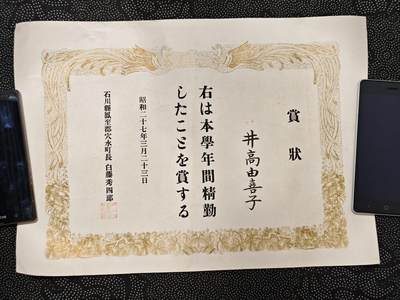 賞狀
井高由喜子
右は本學年間精勤
したことを賞する
昭和二十七年三月二十三日
石川縣鳳至郡穴水町長 白藤秀四郎